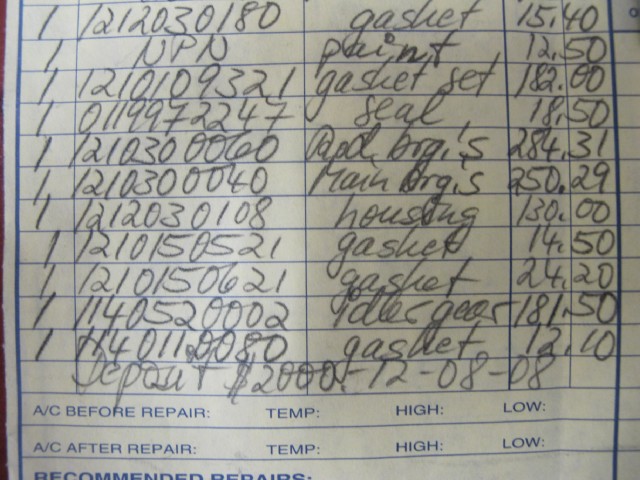 1 1212030180 gasket 15.40
1 NPN paint 12.50
1 1210109321 gasket set 182.00
1 0119972247 seal 18.50
1 1210300060 brg.'s 284.31
1 1210300040 Main brg.'s 250.29
1 1212030108 housing 130.00
1 1210150521 gasket 14.50
1 1210150621 gasket 24.20
1 1140520002 idler gear 181.50
1 1140112080 gasket 12.10
Deposit $2000.- 12-08-08
A/C BEFORE REPAIR: TEMP: HIGH: LOW:
A/C AFTER REPAIR: TEMP: HIGH: LOW:
RECOMMENDED REPAIRS: